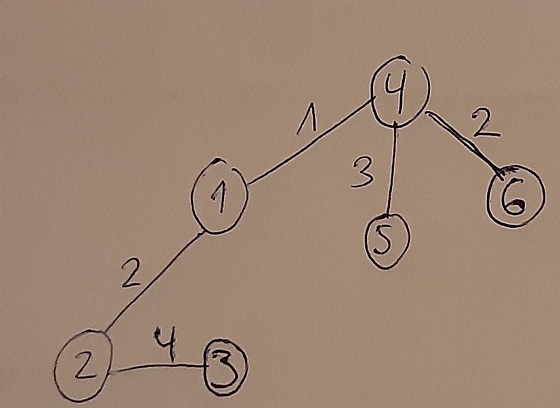 4
1
2
3
1
6
5
2
4
2
3